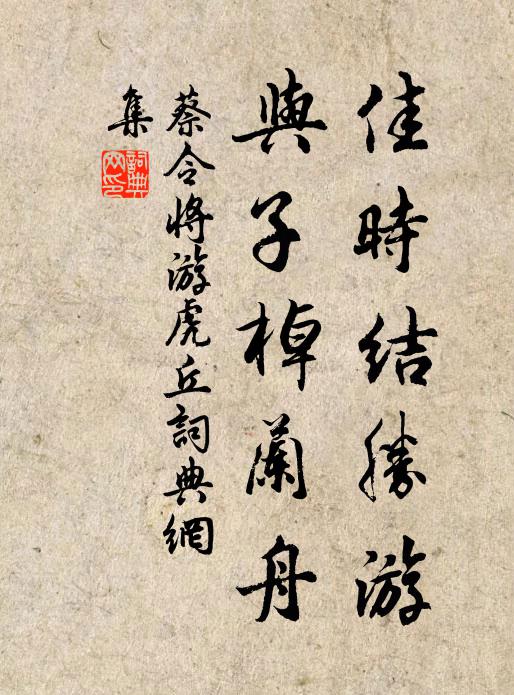 佳時結勝游
與子棹蘭舟
蔡令將游虎丘詞典網
集
詞典
网印